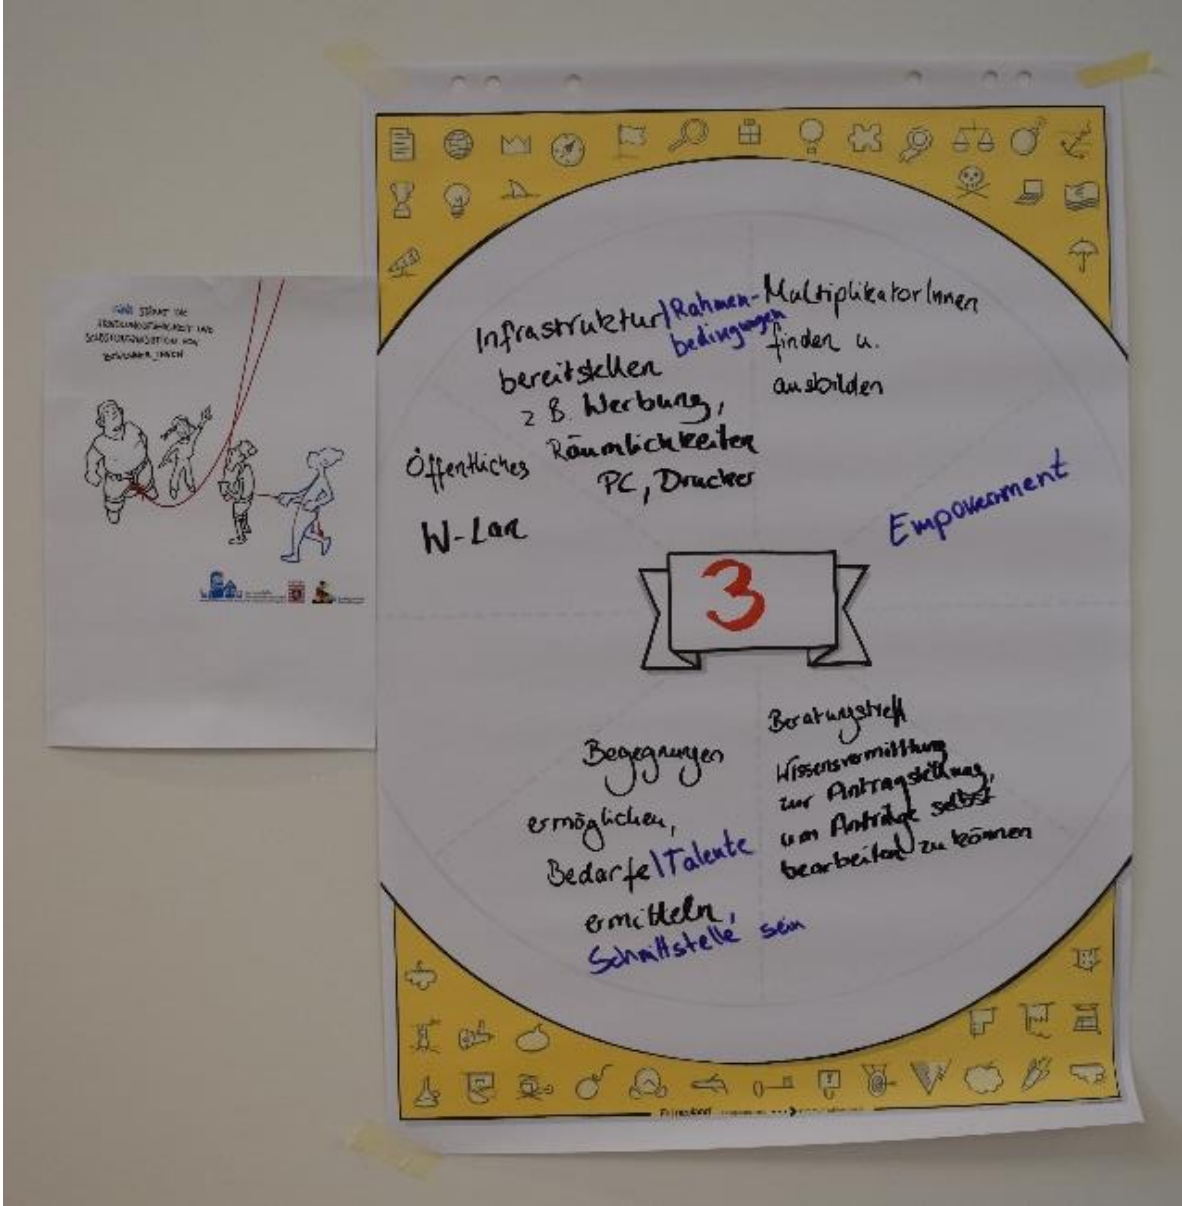 STÄRKT DIE
HANDLUNGSFÄHIGKEIT UND
SELBSTORGANISATION VON
BEWOHNER_INNEN
Infrastruktur/Rahmen-
bedingungen
bereitstellen
z B. Werbung,
Räumlichkeiten
PC, Drucker
MultiplikatorInnen
finden u.
ausbilden
Öffentliches
W-Lan
Empowerment
3
Begegnungen
ermöglichen,
Bedarfe/Talente
ermitteln,
Schnittstelle sein
Beratungstreff
Wissensvermittlung
zur Antragstellung,
um Anträge selbst
bearbeiten zu können